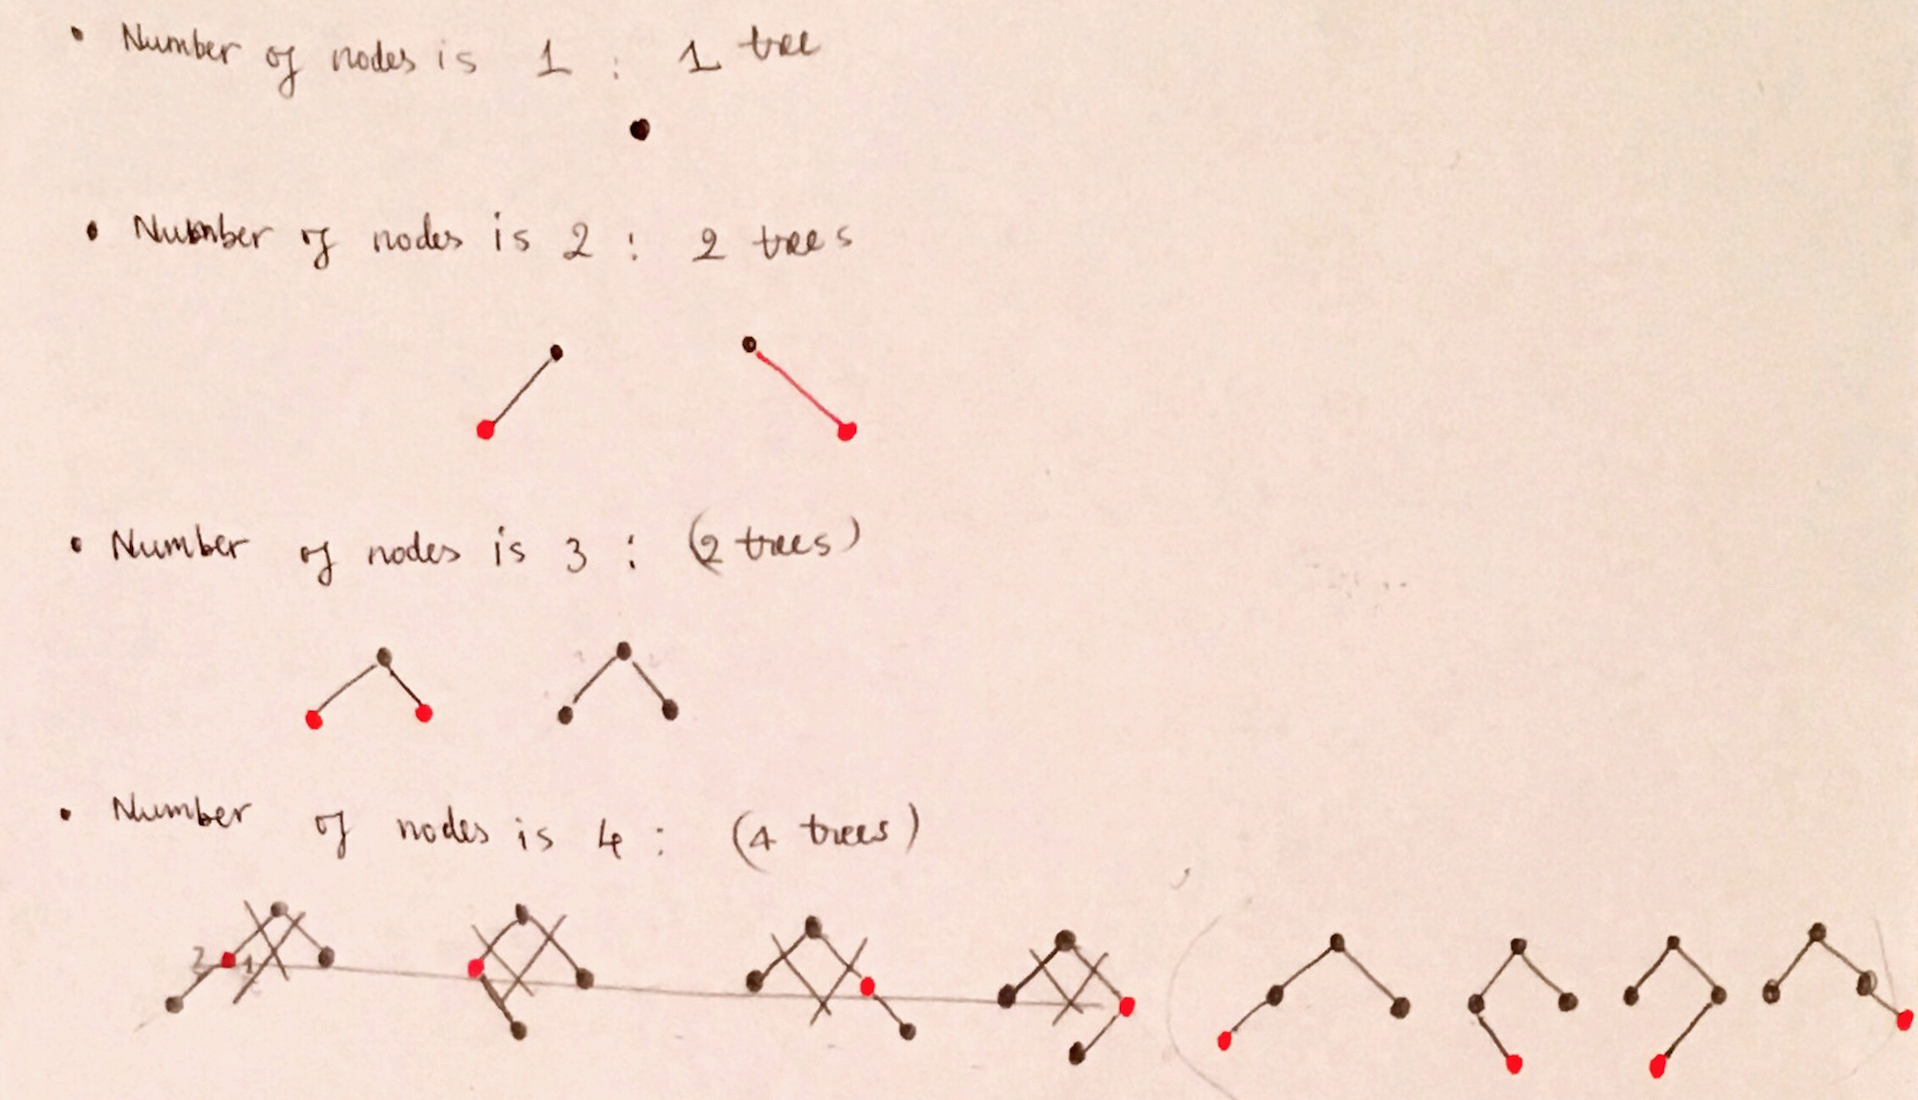 • Number of nodes is 1 : 1 tree
• Number of nodes is 2 : 2 trees
• Number of nodes is 3 : (2 trees)
• Number of nodes is 4 : (4 trees)
2 1